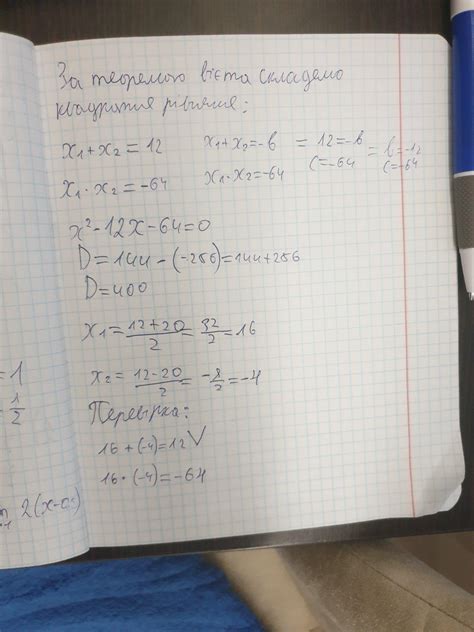 За теоремою Вієта складемо
квадратне рівняння:
x₁+x₂=12 x₁+x₂=-b = 12=-b = b=-12
x₁·x₂=-64 x₁·x₂=-64 c=-64 c=-64
x²-12x-64=0
D=144-(-256)=144+256
D=400
x₁=12+20/2=32/2=16
x₂=12-20/2=-8/2=-4
Перевірка:
16+(-4)=12√
16·(-4)=-64
=1
1/2
2(x-0,